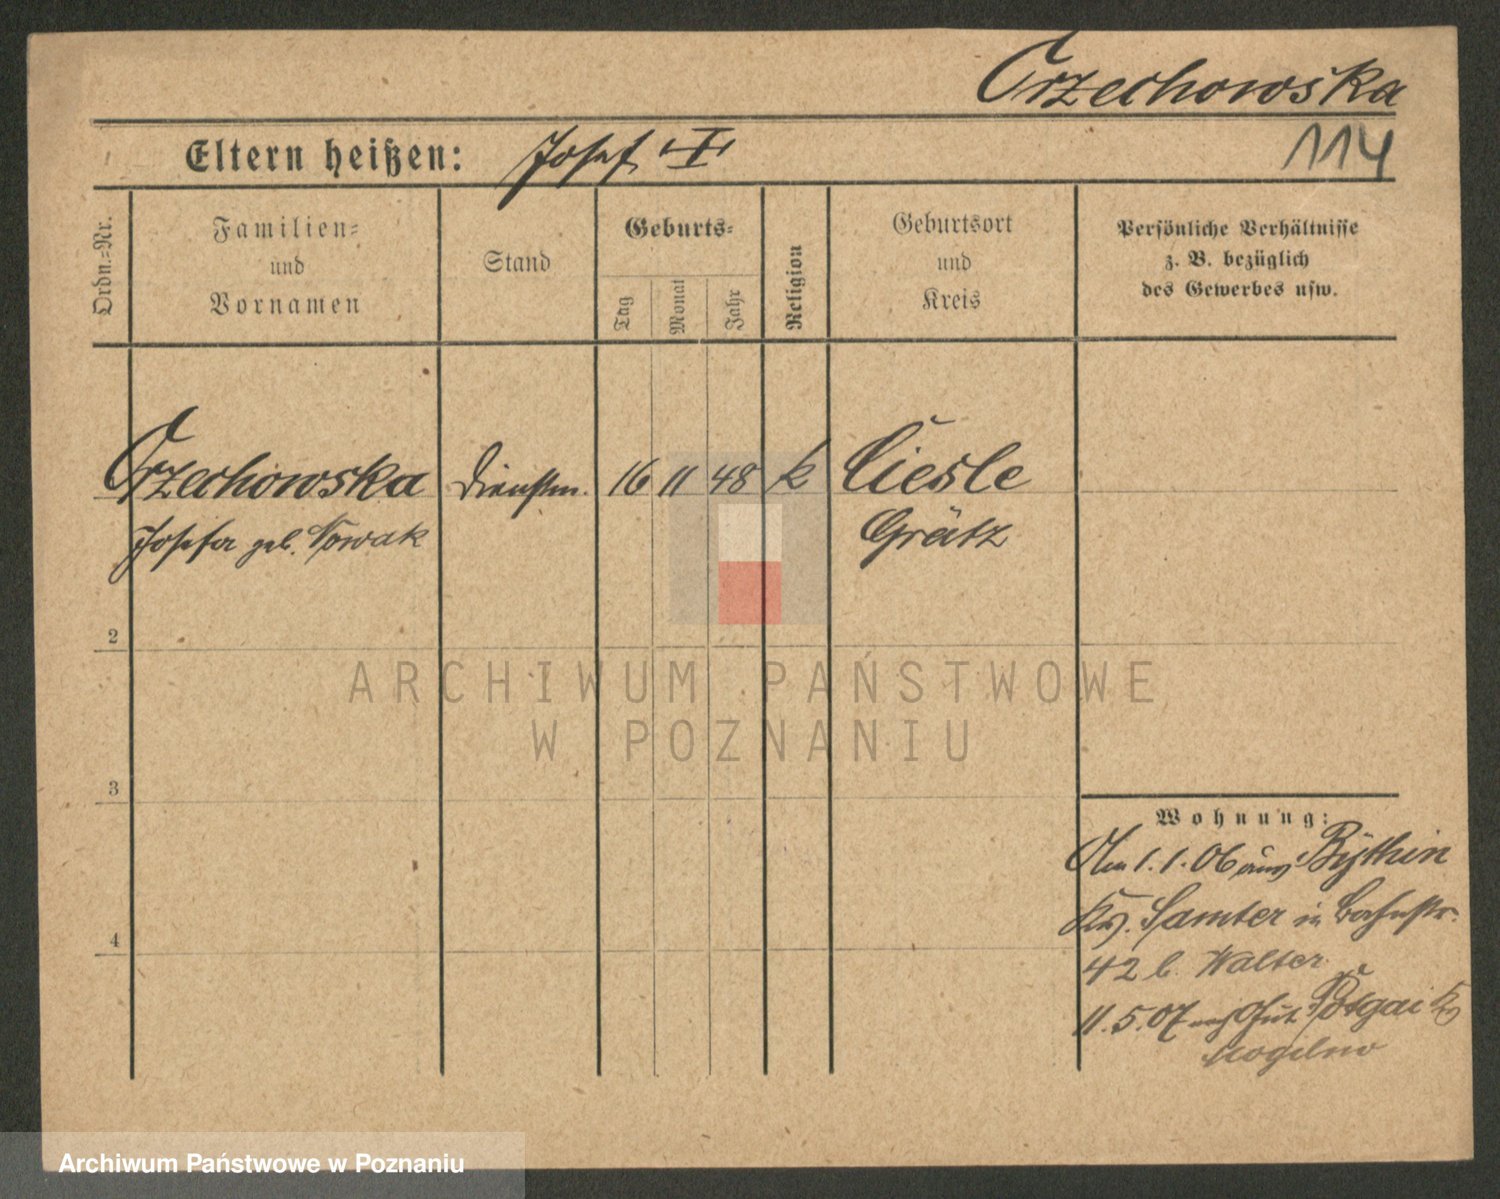 Orzechowska
114
Eltern heißen: Josef
Ordn.=Nr.
Familien=
und
Vornamen
Stand
Geburts=
Tag
Monat
Jahr
Religion
Geburtsort
und
Kreis
Persönliche Verhältnisse
z. B. bezüglich
des Gewerbes usw.
Orzechowska Dienstm. 16 11 48 k Ciesle
Josefa geb. Nowak Grätz
2
3
4
Wohnung:
1.1.06 aus Bythin
Kr. Samter in Bahnstr.
42 b. Walter
11.5.07 nach Gut Kr
Mogilno
ARCHIWUM PAŃSTWOWE
W POZNANIU
Archiwum Państwowe w Poznaniu